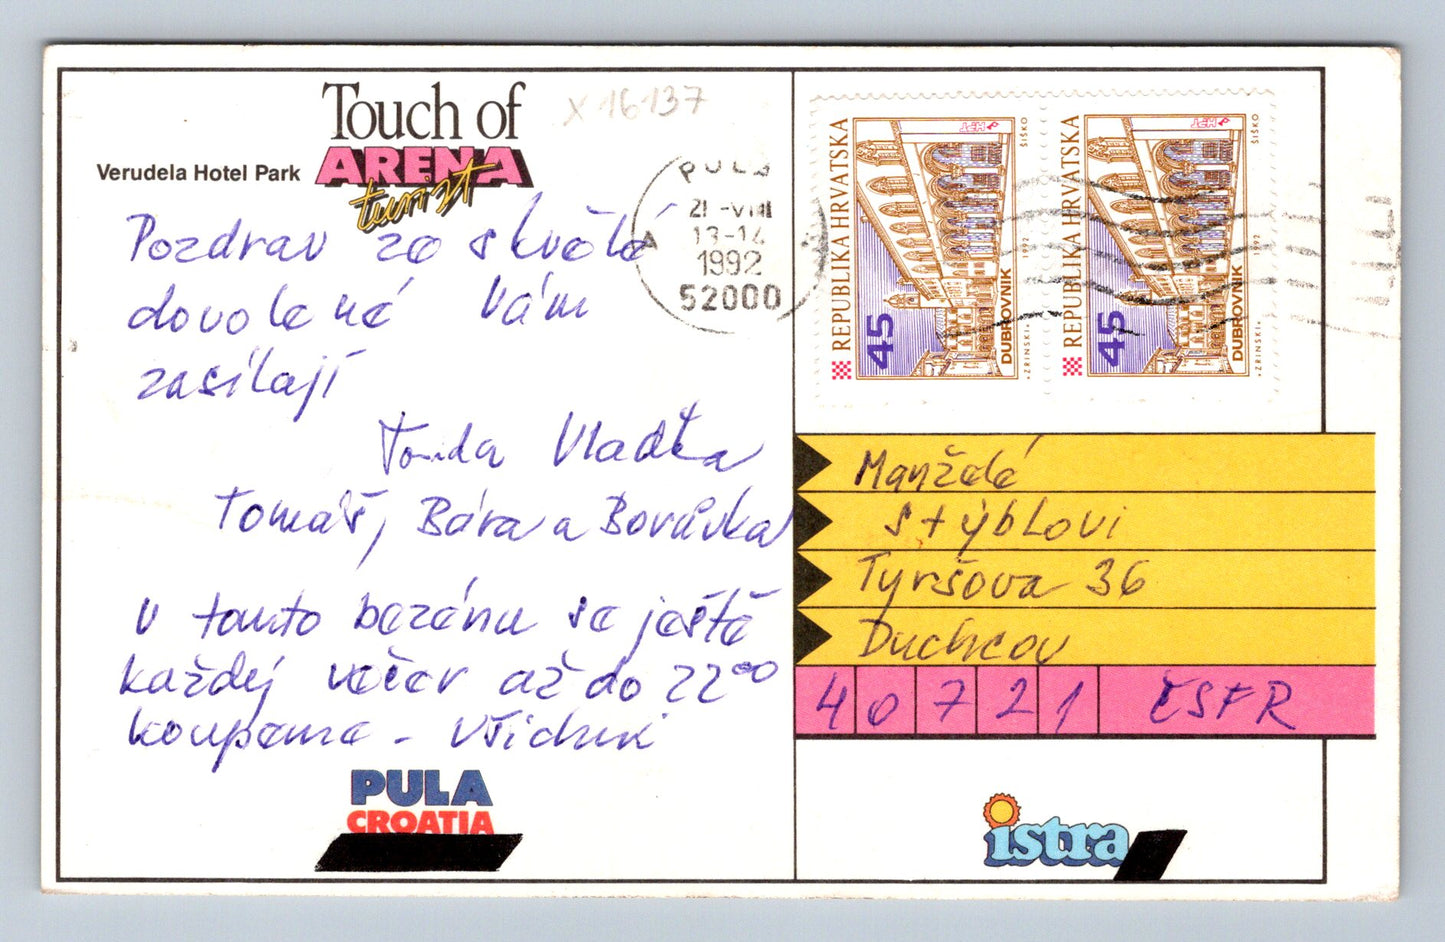 Touch of
ARENA
turist
Verudela Hotel Park
X 16137
Pozdrav ze skvělé
dovolené Vám
zasílají
Tonda Vlaďka
Tomáš, Bára a Borůvka
V tomto bazénu se ještě
každej večer až do 22⁰⁰
koupeme - všichni
PULA
CROATIA
PULA
21-VIII
13-14
1992
52000
A
REPUBLIKA HRVATSKA
45
DUBROVNIK
1992
HPT
ŠIŠKO
"ZRINSKI"
REPUBLIKA HRVATSKA
45
DUBROVNIK
1992
HPT
ŠIŠKO
"ZRINSKI"
Manželé
Stýblovi
Tyršova 36
Duchcov
40721 ČSFR
istra